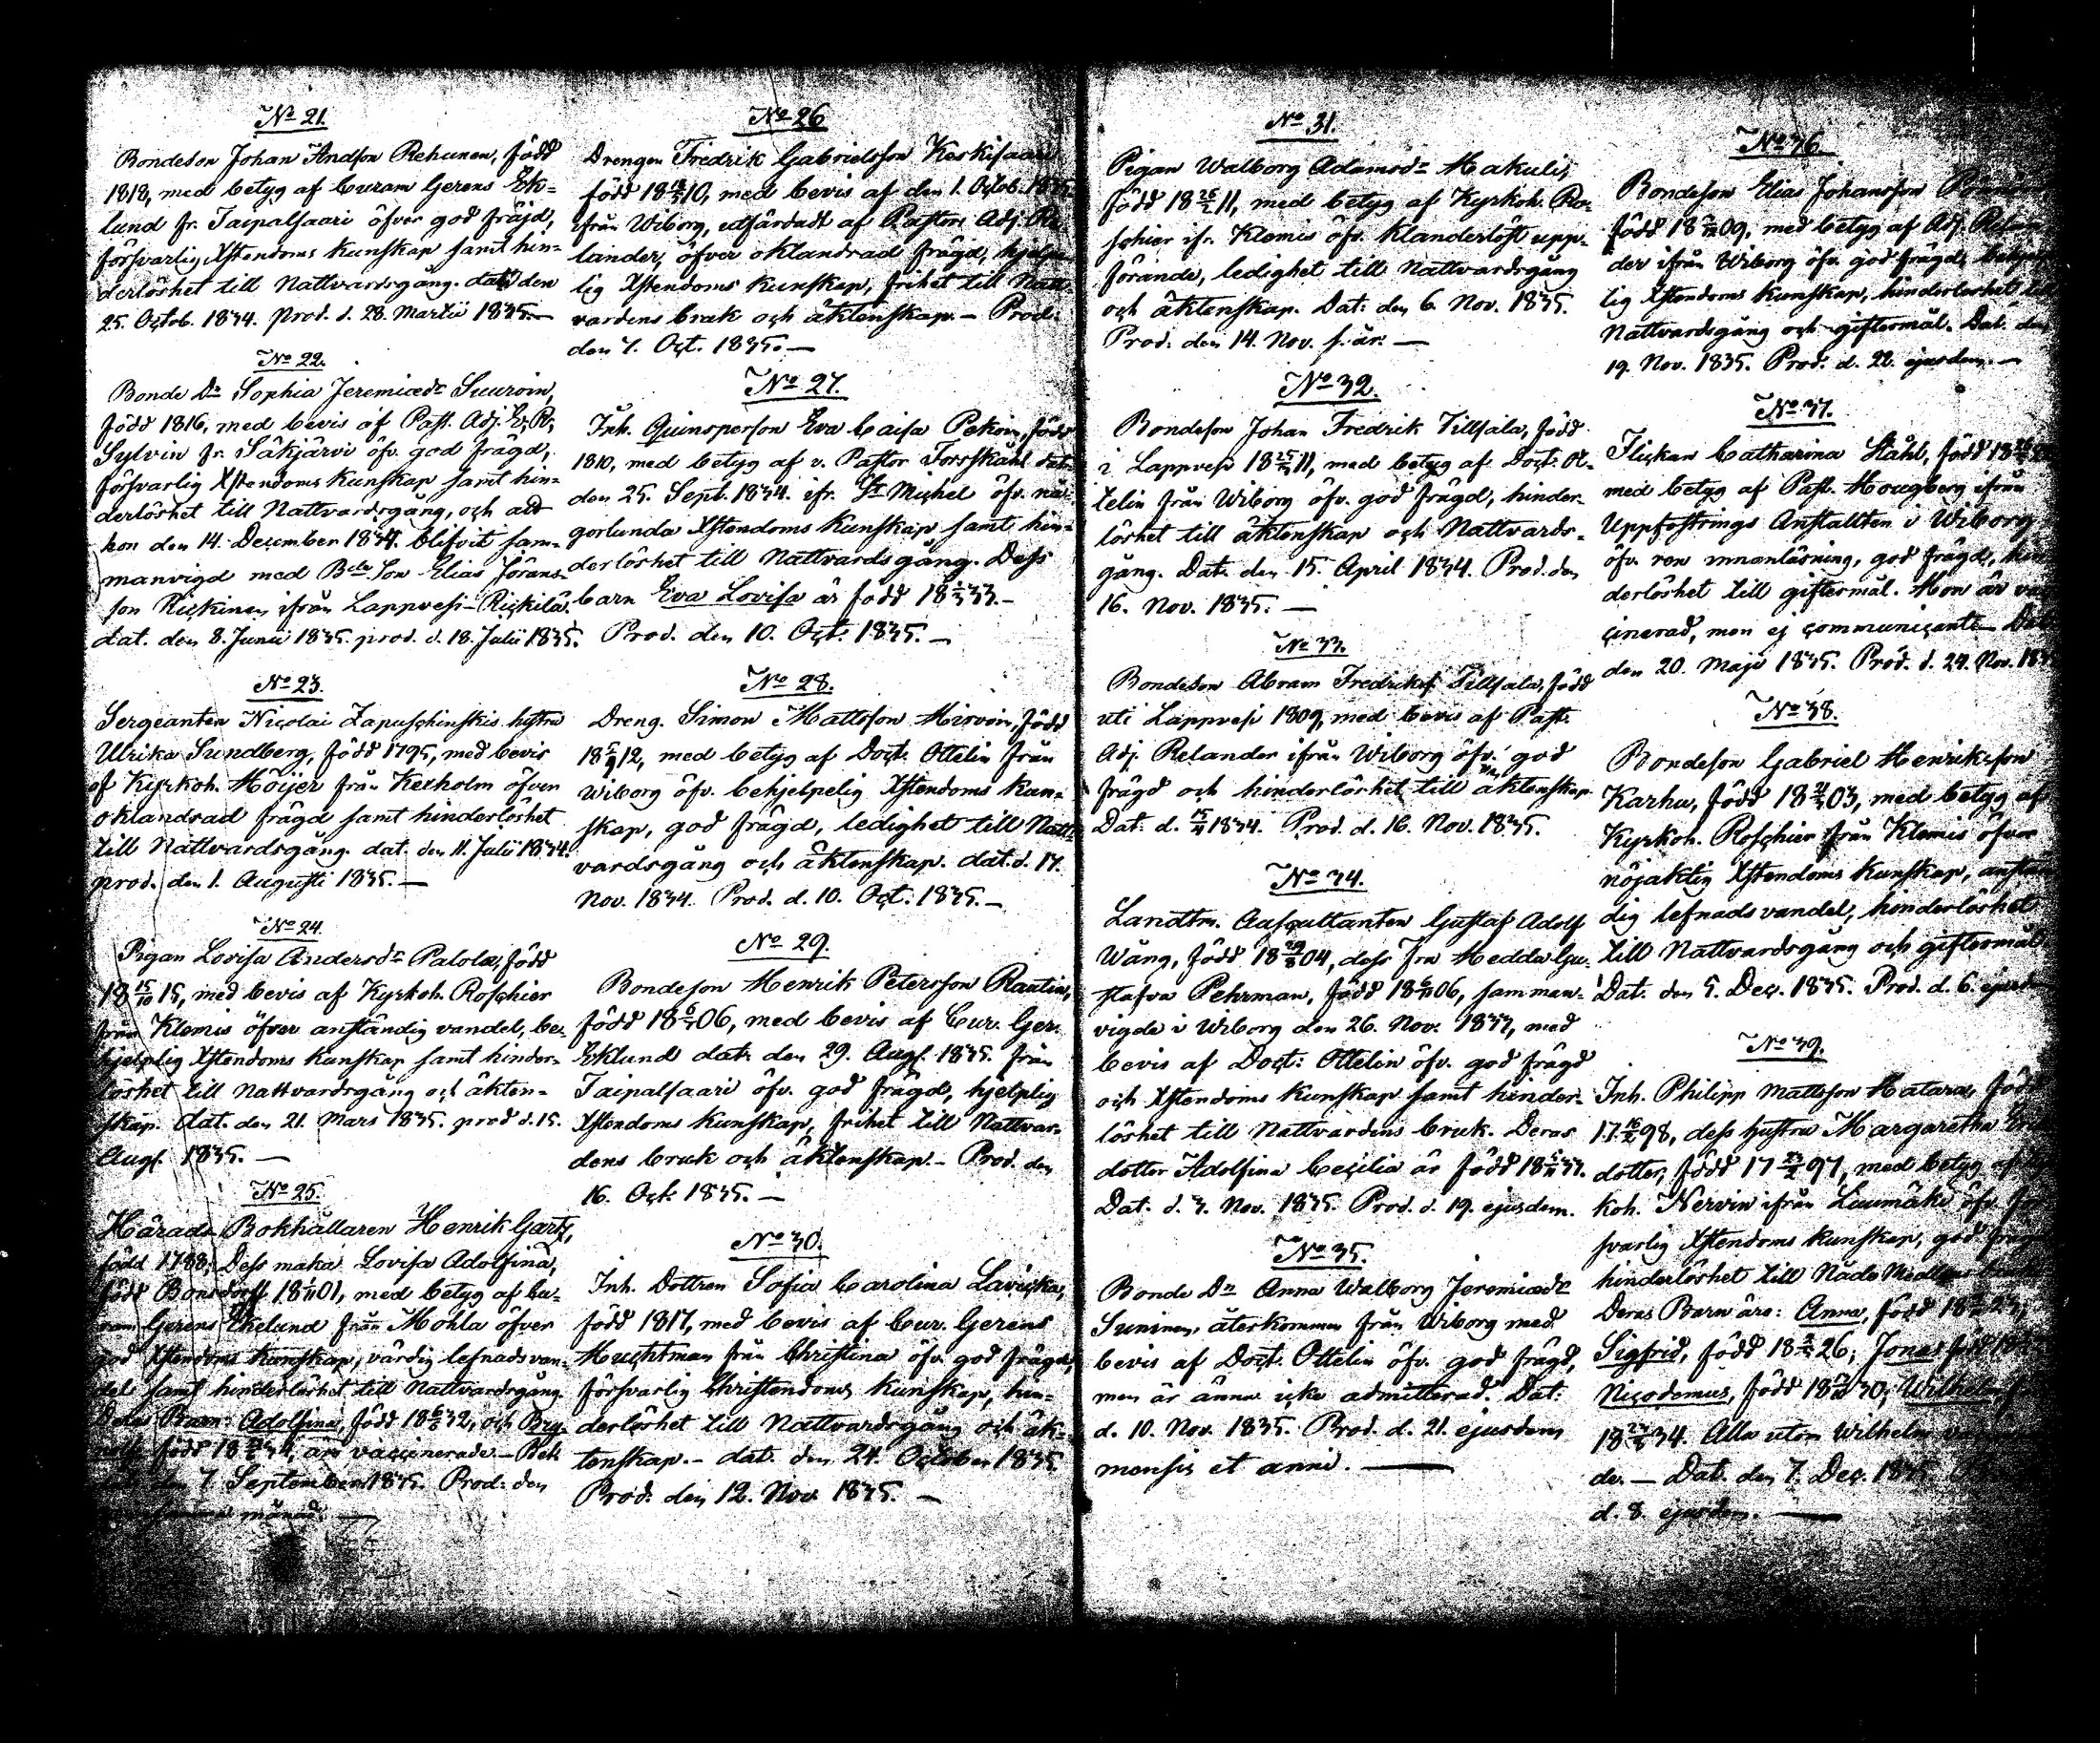 No 21.
Bondeson Johan Andsson Rehunen, född
1818, med betyg af Curam Gerens Ek=
lund fr. Taipalsaari öfver god fräjd,
försvarlig Xstendoms kunskap samt hin=
derlöshet till Nattvardsgång. dat. den
25. Octob. 1834. prod. d. 28. Martii 1835.—
No 22.
Bonde Dr Sophia Jeremiædr Suuroin,
född 1816, med bevis af Past. Adj.
Sylvin fr. Säkjärvi öfv. god frägd,
försvarlig Xstendoms kunskap samt hin=
derlöshet till Nattvardsgång, och att
hon den 14. December 1834. blifvit sam=
manvigd med Bde Son Elias Jörans=
son Rickinen ifrån Lappvesi-Rickilä.
dat. den 8. Junii 1835. prod. d. 18. Julii 1835.
No 23.
Sergeanten Nicolai Zapuschinskis hustru
Ulrika Sundberg, född 1795, med bevis
af Kyrkoh. Höijer från Kexholm öfver
oklandrad frägd samt hinderlöshet
till Nattvardsgång. dat. den 11. Julii 1834.
prod. den 1. Augusti 1835.—
No 24.
Pigan Lovisa Andersdr Palola, född
18 15/10 15, med bevis af Kyrkoh. Roschier
från Klemis öfver anständig vandel, be=
hjelplig Xstendoms kunskap samt hinder=
löshet till Nattvardsgång och äkten=
skap. dat. den 21. Mars 1835. prod d. 15.
Augs. 1835.—
No 25.
Härads Bokhållaren Henrik Gartz,
född 1788, Dess maka Lovisa Adolfina,
född Bonsdorff 18 1/11 01, med betyg af Cu=
ram Gerens Ekelund från Mohla öfver
god Xstendoms kunskap, värdig lefnadsvan=
del samt hinderlöshet till Nattvardsgång.
Deras Barn: Adolfina, född 18 6/8 32, och
född 18 34, äro vaccinerade.—
den 7. September 1835. Prod. den
månad.—
No 26
Drengen Fredrik Gabrielsson Keskisaari
född 18 10, med bevis af den 1. Octob. 1835
ifrån Wiborg, utfärdadt af Pastors Adj. Re=
lander, öfver oklandrad frägd, hjelp=
lig Xstendoms kunskap, frihet till Natt=
vardens bruk och äktenskap.— Prod.
den 7. Oct. 1835.—
No 27.
Inh. Quinsperson Eva Caisa Pekoin, född
1810, med betyg af v. Pastor Forsskåhl dat.
den 25. Sept. 1834. ifr. St Michel öfv. nå=
gorlunda Xstendoms kunskap samt hin=
derlöshet till Nattvards gång. Dess
barn Eva Lovisa är född 18 33.—
Prod. den 10. Oct. 1835.—
No 28.
Dreng. Simon Mattsson Hirvoin, född
18 5/9 12, med betyg af Doct. Ottelin från
Wiborg öfv. behjelpelig Xstendoms kun=
skap, god frägd, ledighet till Natt=
vardsgång och äktenskap. dat. d. 17.
Nov. 1834. Prod. d. 10. Oct. 1835.—
No 29.
Bondeson Henrik Petersson Rautin,
född 18 06, med bevis af Cur. Ger.
Eklund dat. den 29. Augs. 1835. från
Taipalsaari öfv. god frägd, hjelplig
Xstendoms kunskap, frihet till Nattvar=
dens bruk och äktenskap.— Prod. den
16. Oct. 1835.—
No 30.
Inh. Dottren Sofia Carolina Lavicka,
född 1817, med bevis af Cur. Gerens
Huchtman från Christina öfv. god frägd,
försvarlig Christendoms kunskap, hin=
derlöshet till Nattvardsgång och äk=
tenskap.— dat. den 24. October 1835.
Prod. den 12. Nov. 1835.—
No 31.
Pigan Walborg Adamsdr Hakulis,
född 18 11, med betyg af Kyrkoh. Ro=
schier ifr. Klemis öfv. klanderlöst upp=
förande, ledighet till Nattvardsgång
och äktenskap. Dat. den 6. Nov. 1835.
Prod. den 14. Nov. s. år.—
No 32.
Bondeson Johan Fredrik Tillsala, född
i Lappvesi 18 11, med betyg af Doct. Ot=
telin från Wiborg öfv. god frägd, hinder=
löshet till äktenskap och Nattvards=
gång. Dat. den 15. April 1834. Prod. den
16. Nov. 1835.—
No 33.
Bondeson Abram Fredriks Tillsala, född
uti Lappvesi 1809, med bevis af Past.
Adj. Relander ifrån Wiborg öfv. god
frägd och hinderlöshet till äktenskap.
Dat. d. 1834. Prod. d. 16. Nov. 1835.
No 34.
Landtm. Auscultanten Gustaf Adolf
Wång, född 18 29/8 04, dess Fru Hedda Gu=
stafva Pehrman, född 18 06, samman=
vigde i Wiborg den 26. Nov. 1832, med
bevis af Doct: Ottelin öfv. god frägd
och Xstendoms kunskap samt hinder=
löshet till Nattvardens bruk. Deras
dotter Adolfina Cecilia är född 18 33.
Dat. d. 3. Nov. 1835. Prod. d. 19. ejusdem.
No 35.
Bonde Dr Anna Walborg Jeremiædr
Suninen, återkommen från Wiborg med
bevis af Doct. Ottelin öfv. god frägd,
men är ännu icke admitterad. Dat:
d. 10. Nov. 1835. Prod. d. 21. ejusdem
mensis et anni.—
No 36.
Bondeson Elias Johansson
född 18 09, med betyg af Adj. Relan=
der ifrån Wiborg öfv. god frägd,
lig Xstendoms kunskap, hinderlöshet till
Nattvardsgång och giftermål. Dat. den
19. Nov. 1835. Prod. d. 22. ejusdem.—
No 37.
Flickan Catharina Ståhl, född 18
med betyg af Past. Hougberg ifrån
Uppfostrings Anstallten i Wiborg
öfv. ren innanläsning, god frägd, hin=
derlöshet till giftermål. Hon är vac=
cinerad, men ej communicant.— Dat.
den 20. Maji 1835. Prod. d. 24. Nov.
No 38.
Bondeson Gabriel Henriksson
Karhu, född 18 03, med betyg af
Kyrkoh. Roschier från Klemis öfver
nöjaktig Xstendoms kunskap, anstän=
dig lefnads vandel, hinderlöshet
till Nattvardsgång och giftermål.
Dat. den 5. Dec. 1835. Prod. d. 6. ejusdem
No 39.
Inh. Philipp Mattsson Hatara, född
17 98, dess hustru Margaretha
dotter, född 17 97, med betyg af
koh. Nervin ifrån Luumäki öfv. för=
svarlig Xstendoms kunskap, god frägd
hinderlöshet till Nåde Medlens
Deras Barn äro: Anna, född 18 23,
Sigfrid, född 18 26; Jonas född
Nicodemus, född 18 30, Wilhelm
18 34. Alla utom Wilhelm
de.— Dat. den 7. Dec. 1835.
d. 8. ejusdem.—